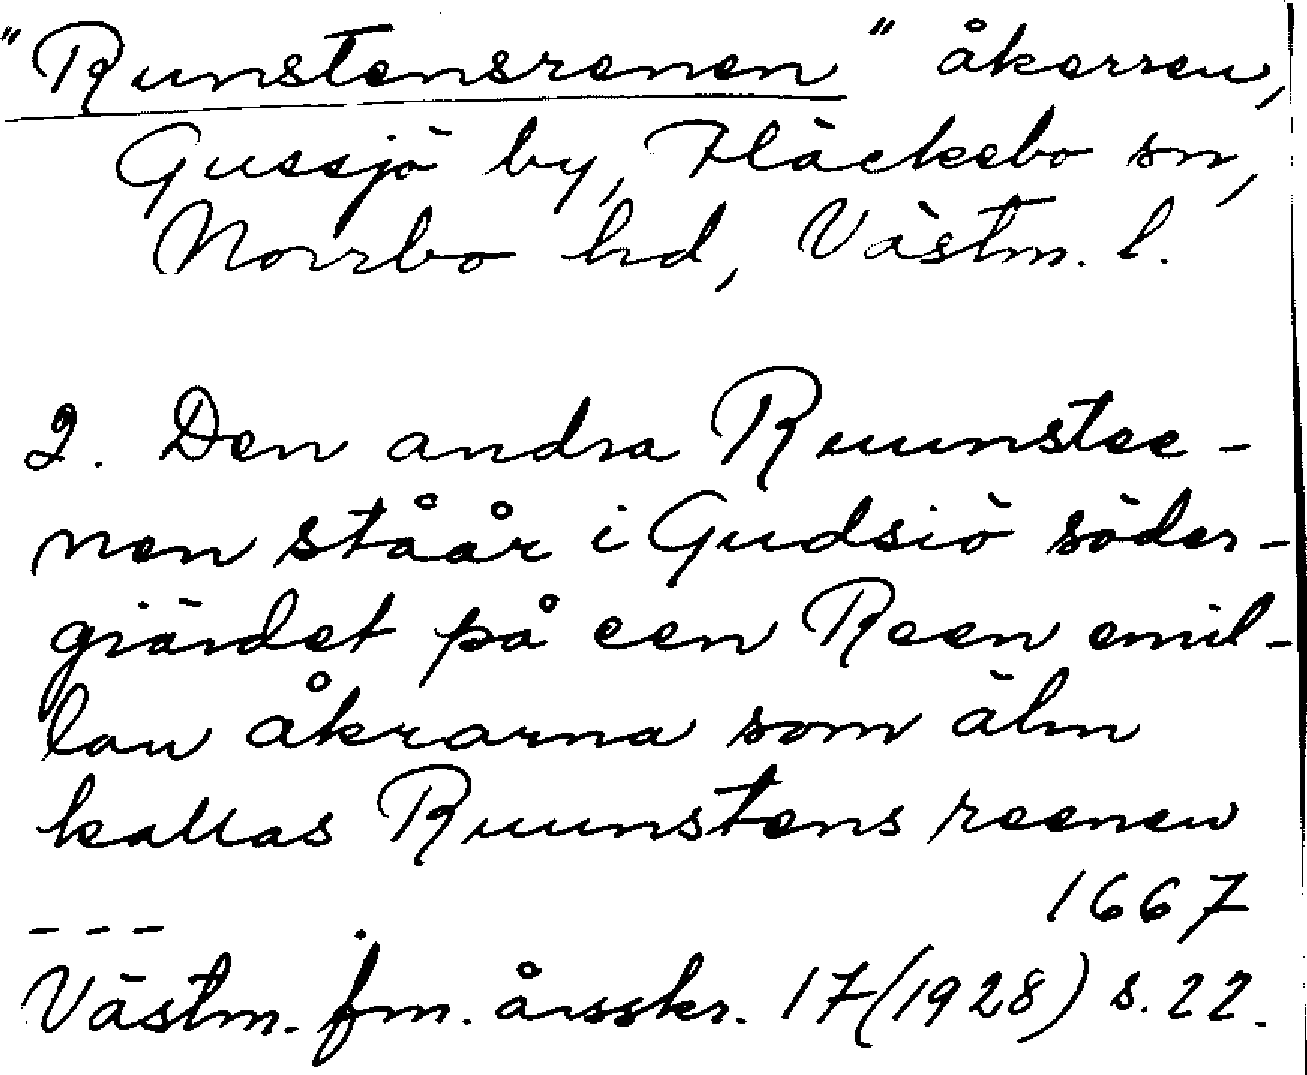 "Runstensrenen" åkerren,
Gussjö by, Fläckebo sn,
Norrbo hd, Västm. l.
2. Den andra Ruunstee-
nen ståår i Gudsiö söder-
giärdet på een Reen emil-
lan åkrarna som älm
kallas Ruunstens reenen
1667
---
Västm. fm. årsskr. 17 (1928) s. 22.